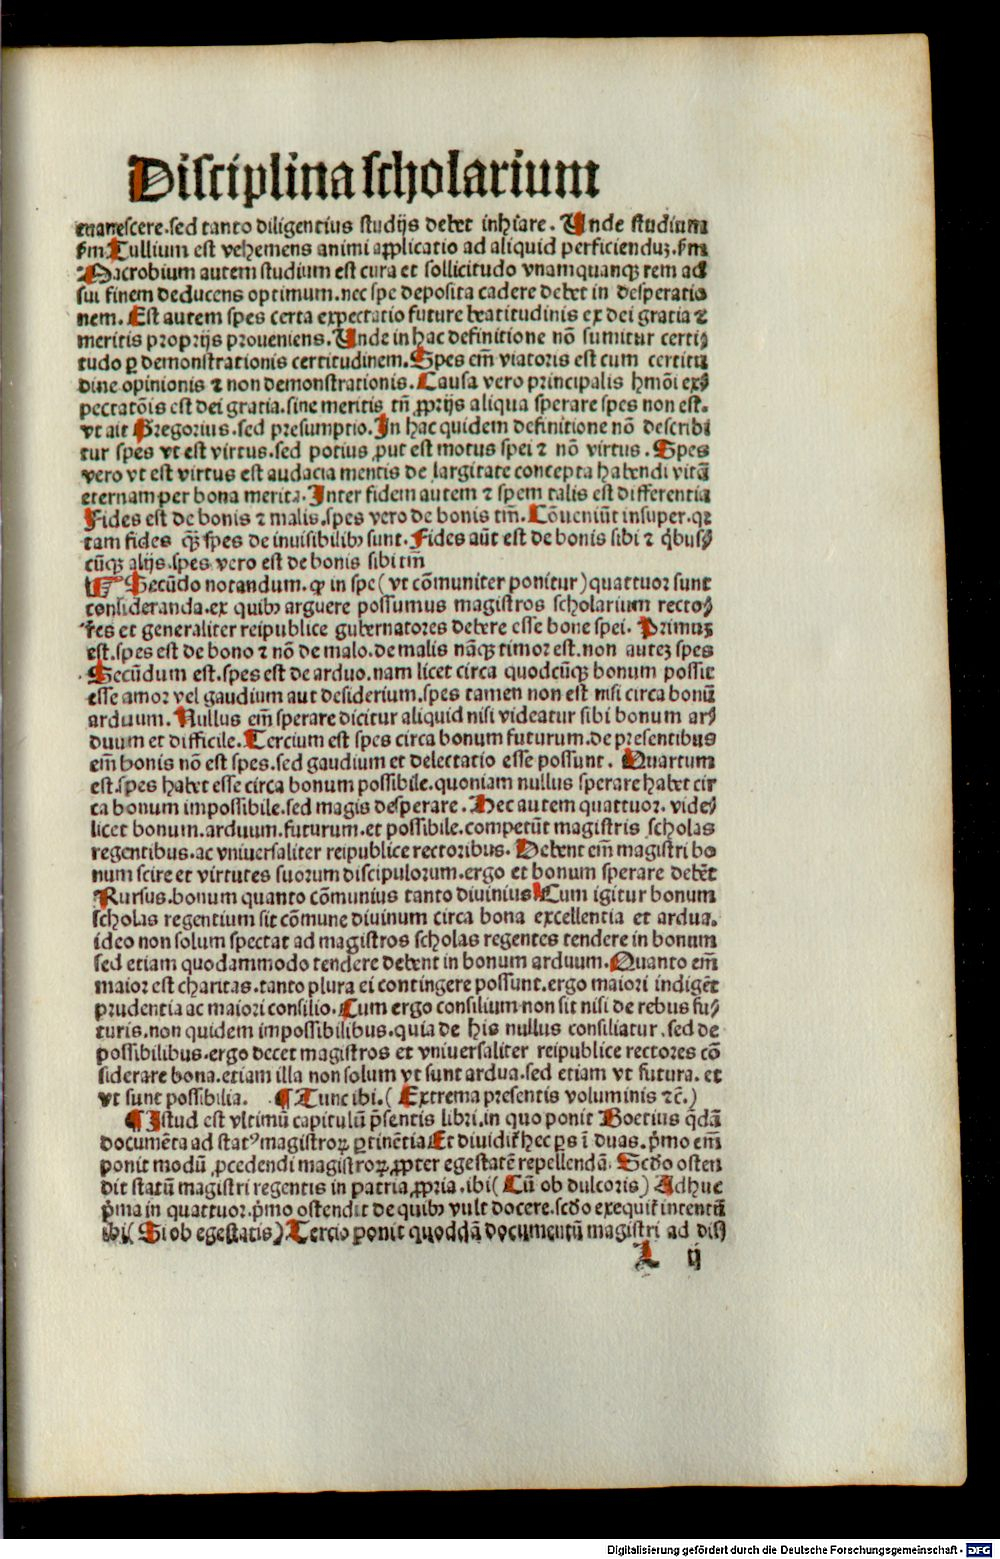 Disciplina scholarium
euanescere.sed tanto diligentius studijs debet inhiare. Unde studium
ẜm Tullium est vehemens animi applicatio ad aliquid perficienduꝫ.ẜm
Macrobium autem studium est cura et sollicitudo vnamquanqꝫ rem ad
sui finem deducens optimum.nec spe deposita cadere debet in desperatio
nem. Est autem spes certa expectatio future beatitudinis ex dei gratia ⁊
meritis proprijs proueniens. Unde in hac definitione nō sumitur certi⸗
tudo ꝑ demonstrationis certitudinem. Spes em̄ viatoris est cum certitu
dine opinionis ⁊ non demonstrationis. Causa vero principalis hmōi ex⸗
pectatōis est dei gratia.sine meritis tn̄ ꝓprijs aliqua sperare spes non est.
vt ait Gregorius.sed presumptio. In hac quidem definitione nō describi
tur spes vt est virtus.sed potius ꝓut est motus spei ⁊ nō virtus. Spes
vero vt est virtus est audacia mentis de largitate concepta habendi vitā
eternam per bona merita. Inter fidem autem ⁊ spem talis est differentia
Fides est de bonis ⁊ malis.spes vero de bonis tm̄. Cōueniūt insuper.qꝛ
tam fides qꝫ̄ spes de inuisibilibꝰ sunt. Fides aūt est de bonis sibi ⁊ q̇bus⸗
cūqꝫ alijs.spes vero est de bonis sibi tm̄
☞ Secūdo notandum.ꝙ in spe (vt cōmuniter ponitur) quattuor sunt
consideranda.ex quibꝰ arguere possumus magistros scholarium recto⸗
res et generaliter reipublice gubernatores debere esse bone spei. Primuꝫ
est.spes est de bono ⁊ nō de malo.de malis nāqꝫ timor est.non auteꝫ spes
Secūdum est.spes est de arduo.nam licet circa quodcūqꝫ bonum possit
esse amor vel gaudium aut desiderium.spes tamen non est nisi circa bonū
arduum. Nullus em̄ sperare dicitur aliquid nisi videatur sibi bonum ar⸗
duum et difficile. Tercium est spes circa bonum futurum.de presentibus
em̄ bonis nō est spes.sed gaudium et delectatio esse possunt. Quartum
est.spes habet esse circa bonum possibile.quoniam nullus sperare habet cir
ca bonum impossibile.sed magis desperare. Hec autem quattuor. vide⸗
licet bonum.arduum.futurum.et possibile.competūt magistris scholas
regentibus.ac vniuersaliter reipublice rectoribus. Debent em̄ magistri bo
num scire et virtutes suorum discipulorum.ergo et bonum sperare debēt
Rursus.bonum quanto cōmunius tanto diuinius Cum igitur bonum
scholas regentium sit cōmune diuinum circa bona excellentia et ardua.
ideo non solum spectat ad magistros scholas regentes tendere in bonum
sed etiam quodammodo tendere debent in bonum arduum. Quanto em̄
maior est charitas.tanto plura ei contingere possunt.ergo maiori indigēt
prudentia ac maiori consilio. Cum ergo consilium non sit nisi de rebus fu⸗
turis.non quidem impossibilibus.quia de his nullus consiliatur.sed de
possibilibus.ergo decet magistros et vniuersaliter reipublice rectores cō
siderare bona.etiam illa non solum vt sunt ardua.sed etiam vt futura. et
vt sunt possibilia. ¶ Tunc ibi.(Extrema presentis voluminis ⁊c̄.)
¶ Istud est vltimū capitulū p̄sentis libri.in quo ponit Boetius q̄dā
documēta ad statꝰ magistroꝝ ꝑtinētia Et diuidit̄ hec ꝑs ī duas. p̄mo em̄
ponit modū ꝓcedendi magistroꝝ.ꝓpter egestatē repellendā. Scd̄o osten
dit statū magistri regentis in patria ꝓpria.ibi (Cū ob dulcoris) Adhuc
p̄ma in quattuor.p̄mo ostendit de quibꝰ vult docere.scd̄o exequit̄ intentū
ibi (Si ob egestatis) Tercio ponit quoddā documentū magistri ad dis⸗
L ij
Digitalisierung gefördert durch die Deutsche Forschungsgemeinschaft - DFG